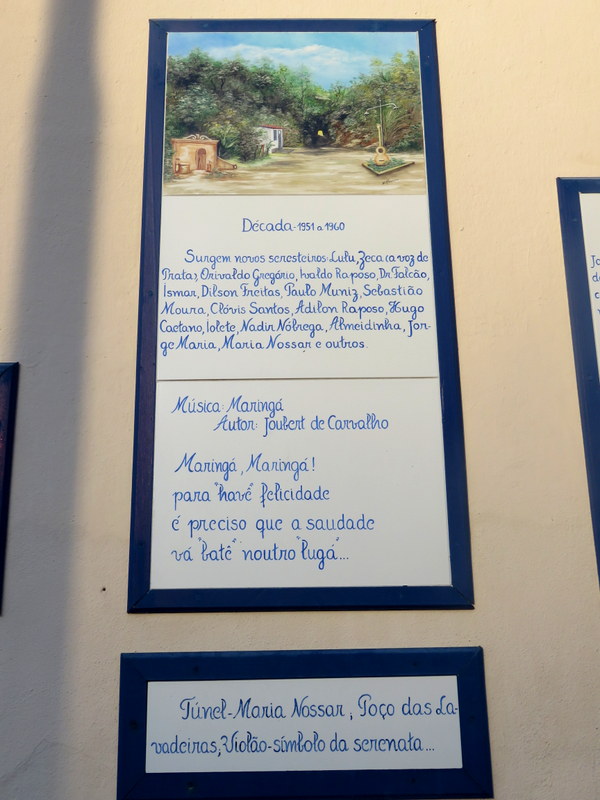 Década-1951 a 1960
Surgem novos seresteiros: Lulu, Zeca (a voz de
Prata), Orivaldo Gregório, Ivaldo Raposo, Dr. Falcão,
Ismar, Dilson Freitas, Paulo Muniz, Sebastião
Moura, Clóvis Santos, Adilon Raposo, Hugo
Caetano, Iolete, Nadir Nóbrega, Almeidinha, Jor-
ge Maria, Maria Nossar e outros.
Música: Maringá
Autor: Joubert de Carvalho
Maringá, Maringá!
para "havê" felicidade
é preciso que a saudade
vá "batê" noutro "lugá"...
Túnel-Maria Nossar, Poço das La-
vadeiras, Violão-símbolo da serenata...